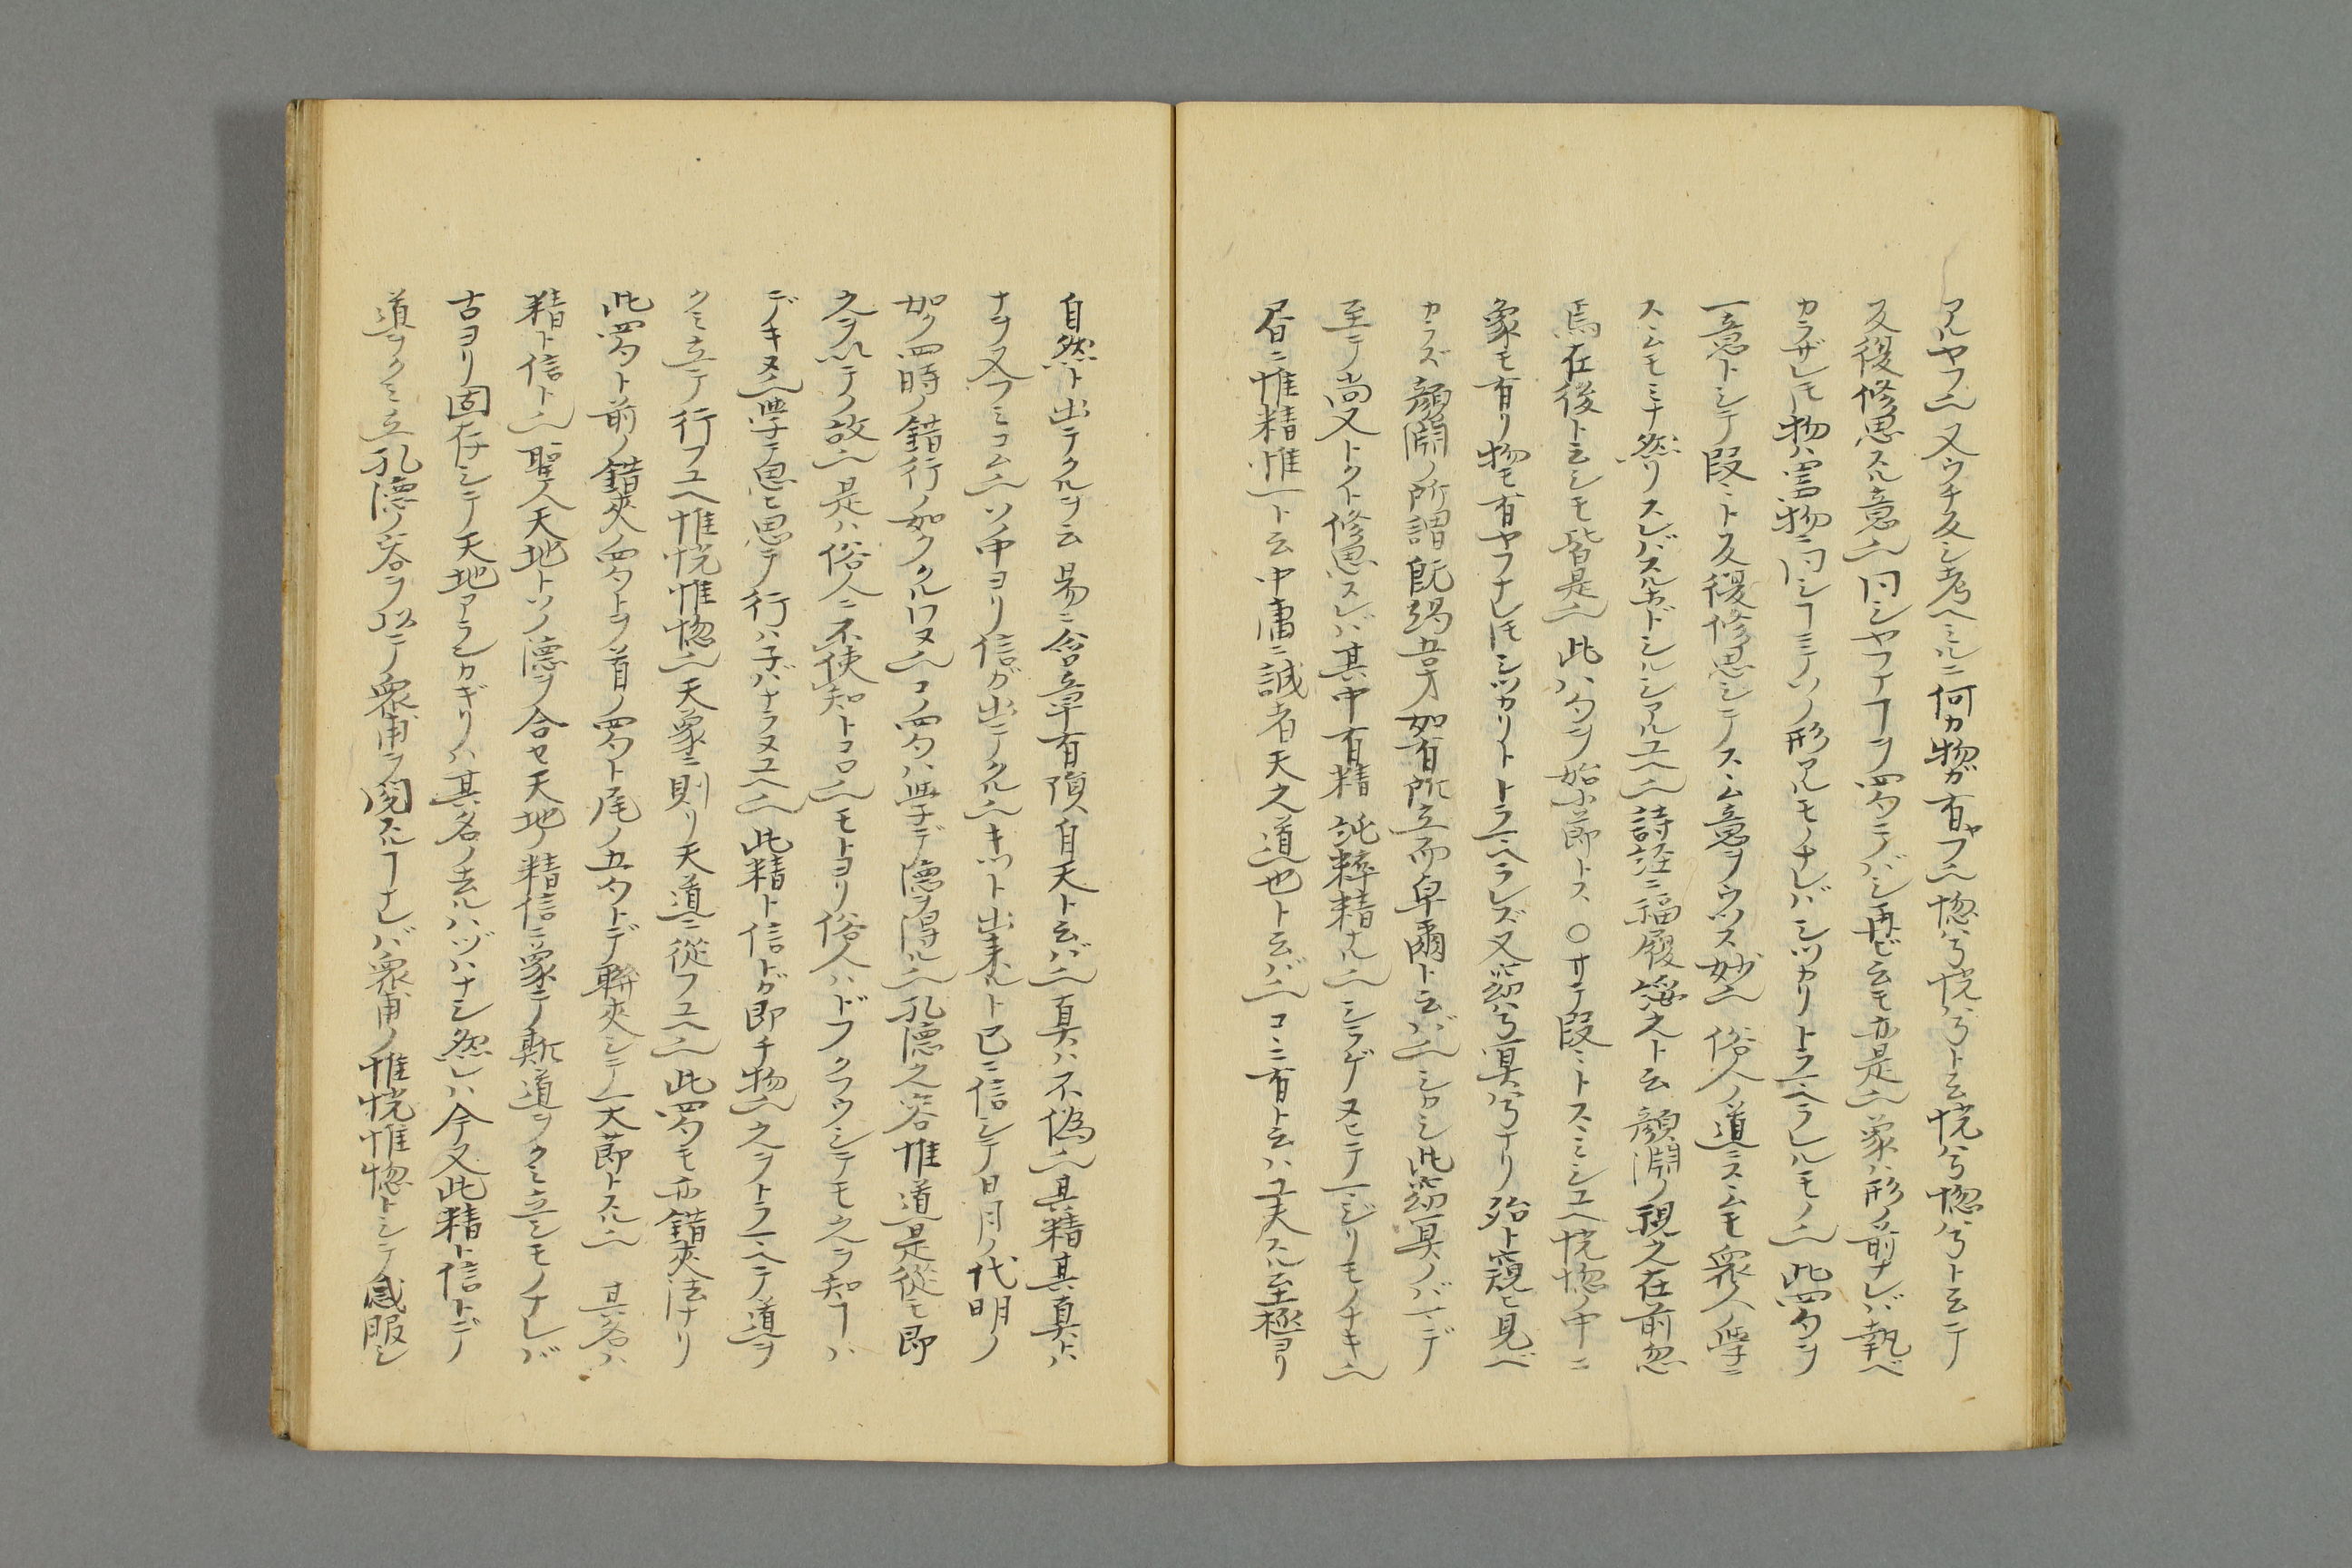 アルヤフ也又ウチ反シ考ヘミルニ何カ物ガ有ヤフ也惚兮恍兮ト云恍兮惚兮ト云テ
反復修思スル意也同シヤフナヿヲ四句ニノバシ再ビ云モ亦是也象ハ形ノ前ナレバ執ベ
カラザレ𪜈物ハ䨇物ニ同シヿミテソノ形アルモノナレバシツカリトラヘラルモノ也此四句ヲ
一意トシテ段ミト反復修思シテスヽム意ヲウツス妙也俗人ノ道ニスヽムモ衆人ノ學ニ
スヽムモミナ然リスレバスルホドシルシアルユヘ也詩経ニ福履綏之ト云顔淵ノ視之在前忽
焉在後ト云シモ皆是也此ハ句ヲ始小節トス○サテ段ミトスヽミシユヘ恍惚ノ中ニ
象モ有リ物モ有ヤフナレ𪜈シツカリトトラヘラレズ又窈兮冥兮ナリ殆ト窺ヒ見ベ
カラズ顔淵ノ所謂既竭吾才如有所立而卓爾ト云バ也シカシ此窈冥ノバマデ
至テノ尚又トクト修思スレバ其中有精純粋精ナル也シラゲヌヒテマジリモノナキ也
昏ニ惟精惟一ト云中庸ニ誠者天之道也ト云バ也コヽニ有ト云ハ工夫スル至極ヨリ
自然ト出テクルヲ云易ニ含章有隕自天ト云バ也真ハ不偽也其精其真ハ
ナヲ又フミコム也ソノ中ヨリ信ガ出テクル也キツト出来ルト已ニ信シテ日月ノ代明ノ
如ク四時ノ錯行ノ如ククルワヌ也コノ四句ハ學デ德ヲ得ル也孔德之容惟道是從モ即
之ヲ以テノ故也是ハ俗人ニ不使知トコロ也モトヨリ俗人ハドフクフウシテモ之ヲ知ヿハ
デキヌ也學テ思ヒ思テ行ハ子バナラヌユヘ也此精ト信トガ即チ物也之ヲトラヘテ道ヲ
クミ立テ行フユヘ惟恍惟惚也天象ニ則リ天道ニ從フユヘ也此四句モ亦錯夾法ナリ
此四句ト前ノ錯夾ノ四句トヲ首ノ四句ト尾ノ五句トデ聯夾シテ一大節トスル也其名ハ
精ト信ト也聖人天地トソノ德ヲ合セ天地ノ精信ニ象テ斯道ヲクミ立シモノナレバ
古ヨリ固存シテ天地アランカギリハ其名ノ去ルハヅハナシ然レハ今又此精ト信トデ
道ヲクミ立孔德ノ容ヲ以テ衆甫ヲ閲スルヿナレバ衆甫ノ惟恍惟惚トシテ感服シ